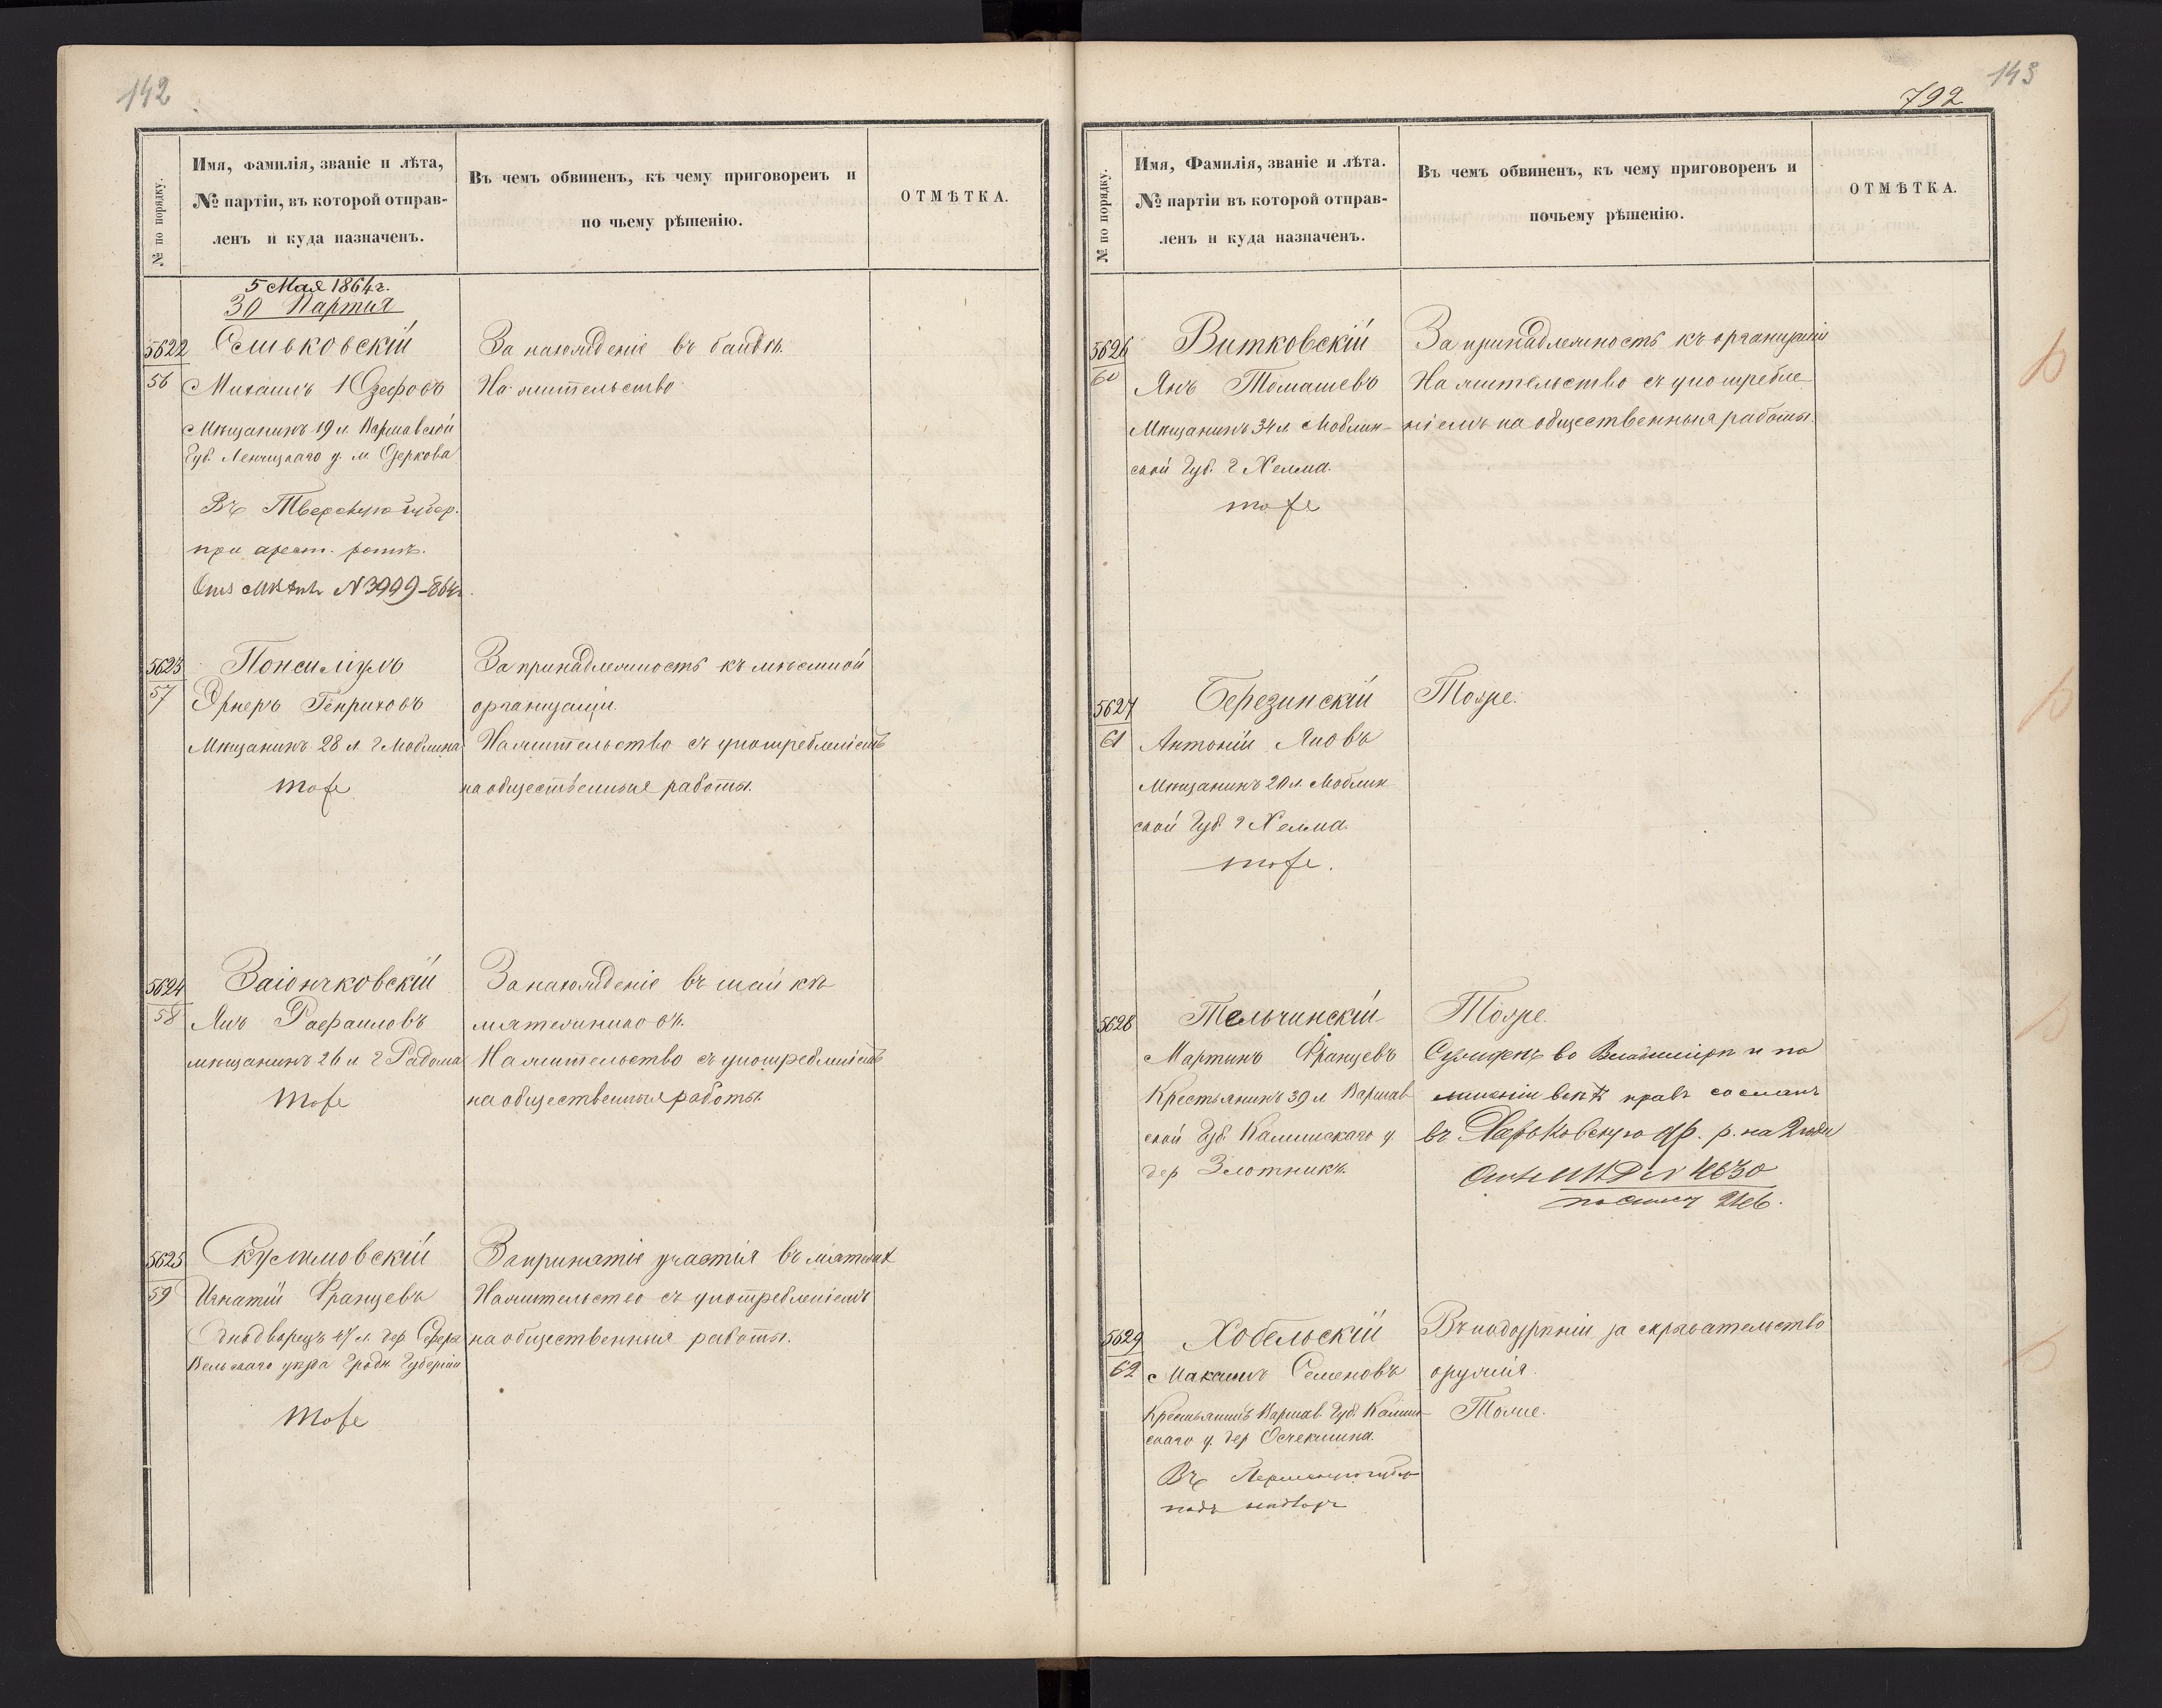 142
№ по порядку.
Имя, Фамилія, званіе и лѣта,
№ партіи, въ которой отправ-
ленъ и куда назначенъ.
Въ чемъ обвиненъ, къ чему приговоренъ и
по чьему рѣшенію.
ОТМѢТКА.
5 Мая 1864 г.
30 Партия
5622
56
Сельковскій
Михаилъ Юзефовъ
Мѣщанинъ 19 л. Варшавской
Губ. Ленчицкаго у. м Озеркова
Въ Тверскую губер.
при арест. ротѣ.
N 3999-864
За нахожденіе въ бандѣ.
На жительство
5623
57
Эрнеръ Генриховъ
Мѣщанинъ 28 л. г Люблина
тоже
За принадлежность къ мѣстной
организаціи.
На жительство съ употребленіемъ
на общественныя работы.
5624
58
Заіончковскій
Янъ Рафаиловъ
мѣщанинъ 26 л. г Радома
тоже
За нахожденіе въ шайкѣ
мятежниковъ.
На жительство съ употребленіемъ
на общественныя работы.
5625
59
Игнатій Францевъ
Однодворецъ 47 л. дер
Бельскаго уѣзда Гродн. Губерніи
тоже
За принятіе участія въ мятежѣ
На жительство съ употребленіемъ
на общественныя работы.
143
792
№ по порядку.
Имя, Фамилія, званіе и лѣта.
№ партіи въ которой отправ-
ленъ и куда назначенъ.
Въ чемъ обвиненъ, къ чему приговоренъ и
почьему рѣшенію.
ОТМѢТКА.
5626
60
Витковскій
Янъ Томашевъ
Мѣщанинъ 34 л. Люблин-
ской Губ. г Хелма.
тоже
За принадлежность къ организаціи
На жительство съ употребле-
ніемъ на общественныя работы.
5627
61
Березинскій
Антоній Яновъ
Мѣщанинъ 20 л. Люблин
ской Губ. г Хелма.
тоже.
Тоже.
5628
Тельчинскій
Мартинъ Францевъ
Крестьянинъ 39 л Варшав
ской Губ. Калишскаго у.
дер Злотникъ.
Тоже.
во Владимірѣ и по
лишеніи всѣхъ правъ сосланъ
въ Харьковскую ар. р. на 2 года
5629
62
Хобельскій
Максимъ Семеновъ
Крестьянинъ Варшав. Губ. Калиш-
скаго у. дер
Въ Пермскую губ
подъ надзоръ
Въ подозрѣніи за скрывательство
оружія.
Тоже.